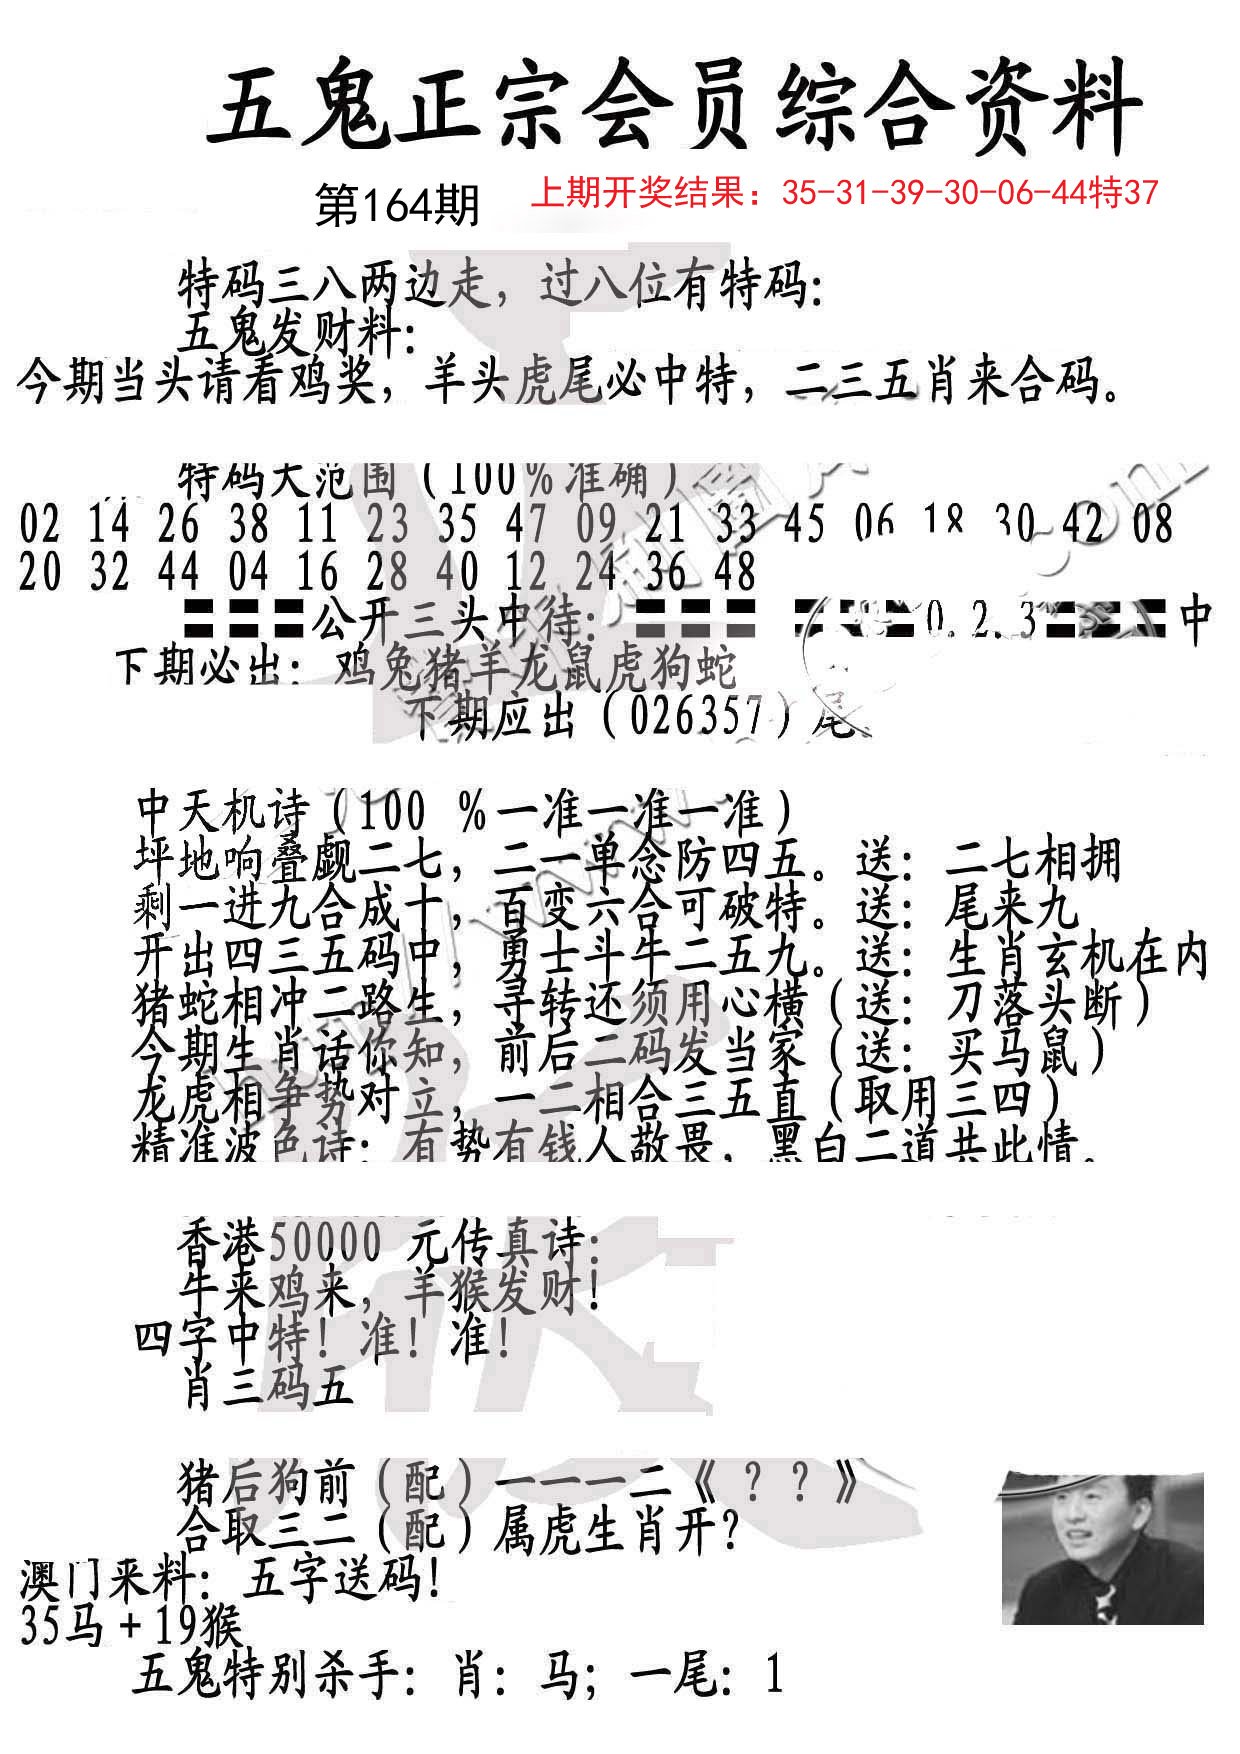 五鬼正宗会员综合资料
第164期
上期开奖结果：35-31-39-30-06-44特37
特码三八两边走，过八位有特码：
五鬼发财料：
今期当头请看鸡奖，羊头虎尾必中特，二三五肖来合码。
特码大范围（100%准确）
02 14 26 38 11 23 35 47 09 21 33 45 06 18 30 42 08
20 32 44 04 16 28 40 12 24 36 48
☷公开三头中待：☷ ☷0.2.3☷中
下期必出：鸡兔猪羊龙鼠虎狗蛇
下期应出（026357）尾
中天机诗（100 %一准一准一准）
坪地响叠觑二七，二一单念防四五。送：二七相拥
剩一进九合成十，百变六合可破特。送：尾来九
开出四三五码中，勇士斗牛二五九。送：生肖玄机在内
猪蛇相冲二路生，寻转还须用心横（送：刀落头断）
今期生肖话你知，前后二码发当家（送：买马鼠）
龙虎相争势对立，一二相合三五直（取用三四）
精准波色诗：有势有钱人敬畏，黑白二道共此情。
香港50000 元传真诗：
牛来鸡来，羊猴发财！
四字中特！准！准！
肖三码五
猪后狗前（配）一一一二《？？》
合取三二（配）属虎生肖开？
澳门来料：五字送码！
35马＋19猴
五鬼特别杀手：肖：马；一尾：1